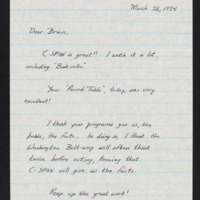 March 26, 1994
Dear Brian,
C-SPAN is great!! I watch it a lot,
including "Booknotes."
Your "Round Table", today, was very
excellent!
I think your programs give us, the
public, the facts. In doing so, I think the
Washington Belt-way will often think
twice before acting, knowing that
C-SPAN will give us the facts.
Keep up the great work!